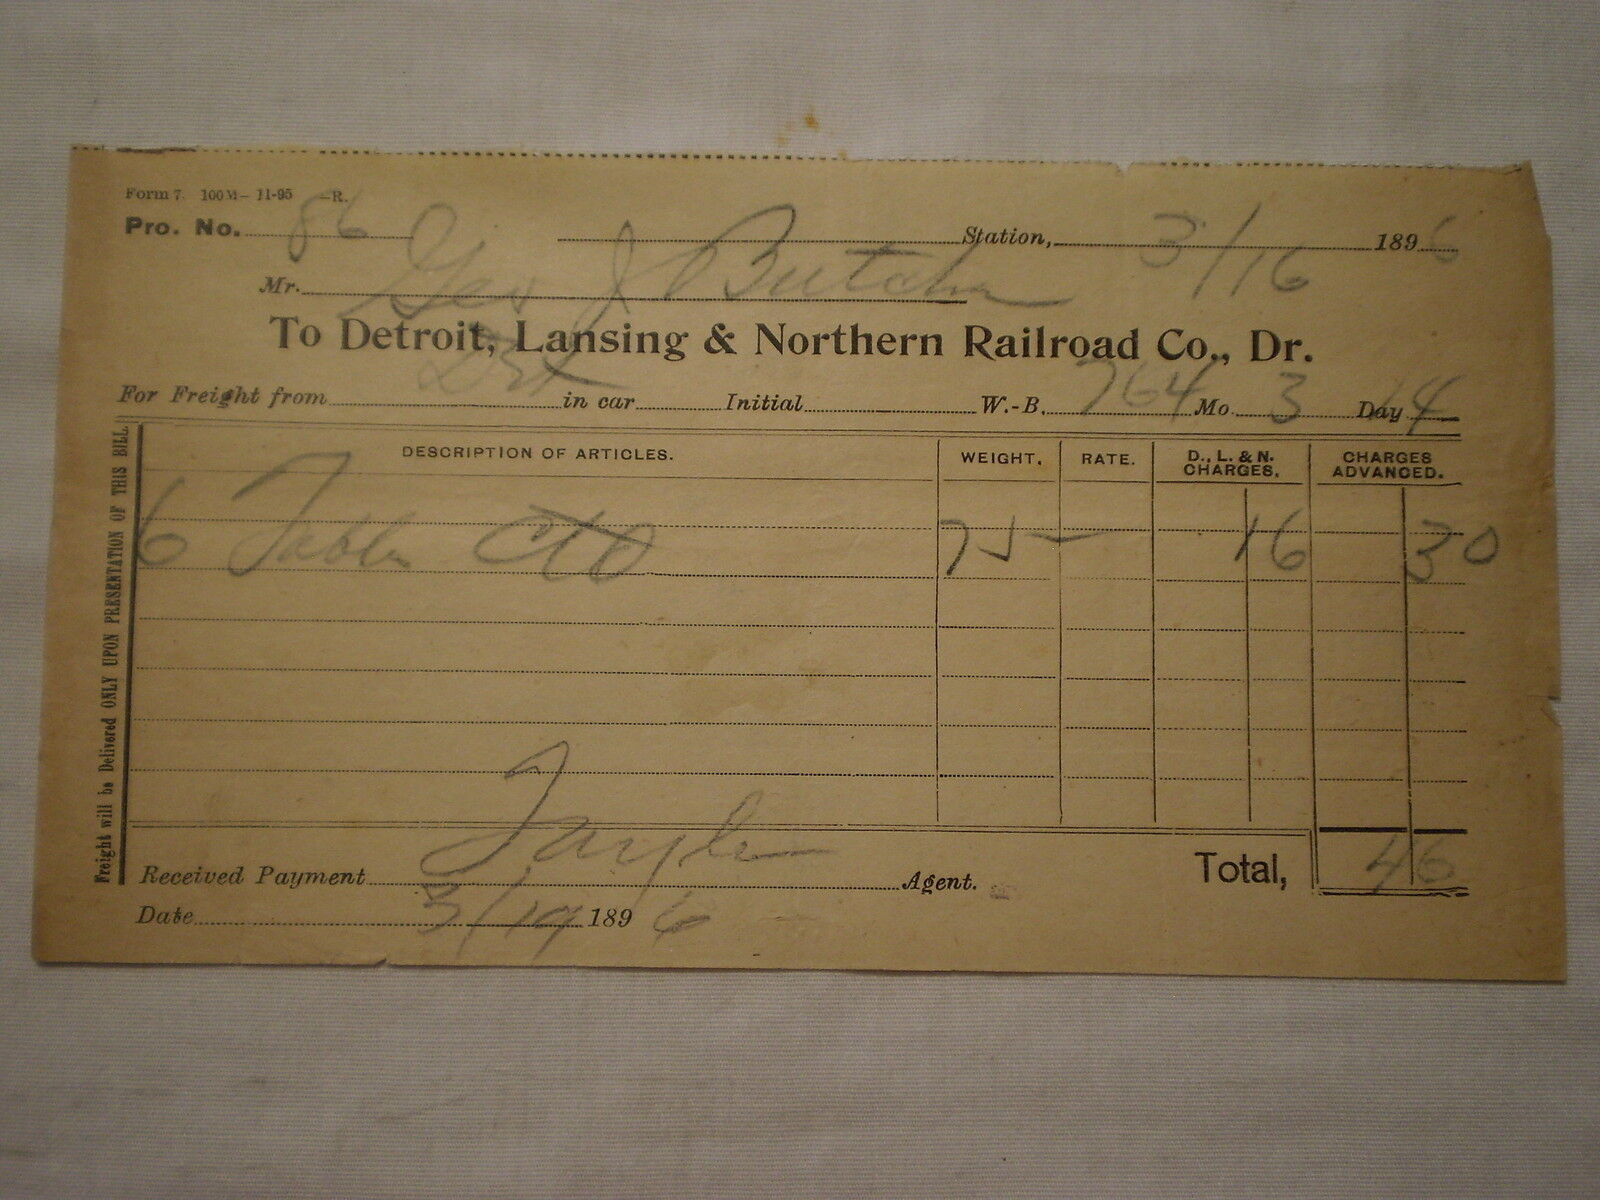 Form 7. 100M—11-95 —R.
Pro. No. 86 Station, 3/16 1896
Mr. Geo J Butcher
To Detroit, Lansing & Northern Railroad Co., Dr.
For Freight from Det in car Initial W.-B. 764 Mo 3 Day 14
Freight will be Delivered ONLY UPON PRESENTATION OF THIS BILL.
DESCRIPTION OF ARTICLES. WEIGHT. RATE. D., L. & N. CHARGES. CHARGES ADVANCED.
6 Table 75 16 30
Received Payment Taylor Agent. Total, 46
Date 3/19 1896